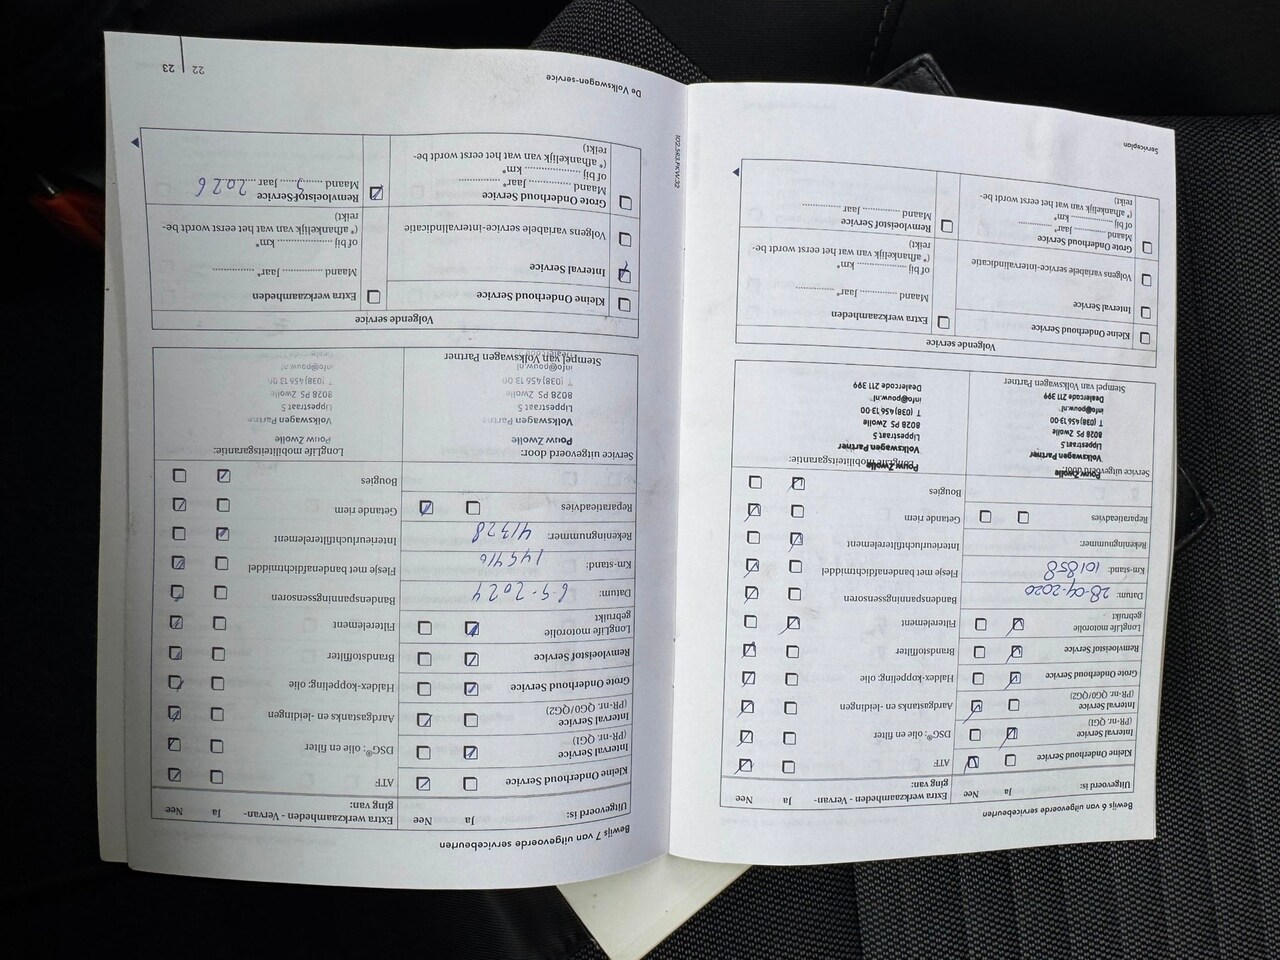 Serviceplan
Bewijs 6 van uitgevoerde servicebeurten
Uitgevoerd is: Ja Nee
Kleine Onderhoud Service
Interval Service
(PR-nr. QG1)
Interval Service
(PR-nr. QG0/QG2)
Grote Onderhoud Service
Remvloeistof Service
LongLife motorolie
gebruikt
Datum: 28-04-2020
Km-stand: 101858
Rekeningnummer:
Reparatieadvies
Service uitgevoerd door:
Pouw Zwolle
Volkswagen Partner
Lippestraat 5
8028 PS Zwolle
T (038) 456 13 00
info@pouw.nl
Dealercode 211 399
Stempel van Volkswagen Partner
Extra werkzaamheden - Vervan-
ging van: Ja Nee
ATF
DSG®; olie en filter
Aardgastanks en -leidingen
Haldex-koppeling; olie
Brandstoffilter
Filterelement
Bandenspanningssensoren
Flesje met bandenafdichtmiddel
Interieurluchtfilterelement
Getande riem
Bougies
LongLife mobiliteitsgarantie:
Pouw Zwolle
Volkswagen Partner
Lippestraat 5
8028 PS Zwolle
T (038) 456 13 00
info@pouw.nl
Dealercode 211 399
Volgende service
Kleine Onderhoud Service
Interval Service
Volgens variabele service-intervalindicatie
Grote Onderhoud Service
Maand ............ Jaar* ............
of bij .................... km*
(*afhankelijk van wat het eerst wordt be-
reikt)
Extra werkzaamheden
Maand ............ Jaar* ............
of bij .................... km*
(*afhankelijk van wat het eerst wordt be-
reikt)
Remvloeistof Service
Maand ............ Jaar ............
102.5R3.PKW.32
Bewijs 7 van uitgevoerde servicebeurten
Uitgevoerd is: Ja Nee
Kleine Onderhoud Service
Interval Service
(PR-nr. QG1)
Interval Service
(PR-nr. QG0/QG2)
Grote Onderhoud Service
Remvloeistof Service
LongLife motorolie
gebruikt
Datum: 6-5-2024
Km-stand: 145416
Rekeningnummer: 41328
Reparatieadvies
Service uitgevoerd door:
Pouw Zwolle
Volkswagen Partner
Lippestraat 5
8028 PS Zwolle
T (038) 456 13 00
info@pouw.nl
Stempel van Volkswagen Partner
Extra werkzaamheden - Vervan-
ging van: Ja Nee
ATF
DSG®; olie en filter
Aardgastanks en -leidingen
Haldex-koppeling; olie
Brandstoffilter
Filterelement
Bandenspanningssensoren
Flesje met bandenafdichtmiddel
Interieurluchtfilterelement
Getande riem
Bougies
LongLife mobiliteitsgarantie:
Pouw Zwolle
Volkswagen Partner
Lippestraat 5
8028 PS Zwolle
T (038) 456 13 00
info@pouw.nl
Volgende service
Kleine Onderhoud Service
Interval Service
Volgens variabele service-intervalindicatie
Grote Onderhoud Service
Maand ............ Jaar* ............
of bij .................... km*
(*afhankelijk van wat het eerst wordt be-
reikt)
Extra werkzaamheden
Maand ............ Jaar* ............
of bij .................... km*
(*afhankelijk van wat het eerst wordt be-
reikt)
Remvloeistof Service
Maand 5 Jaar 2026
De Volkswagen-service
22 23